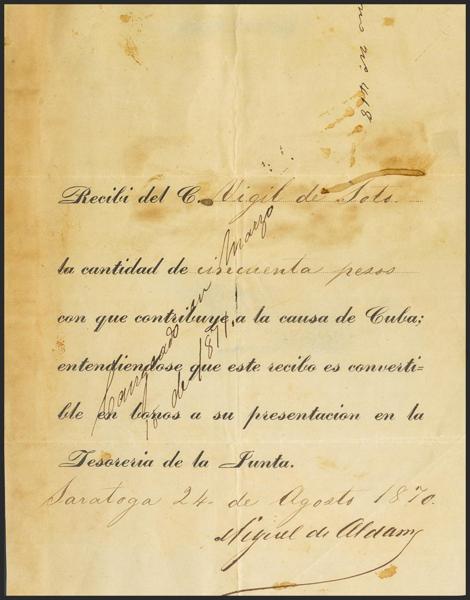 no. 418
Recibi del C. Vigil de Soto
la cantidad de cincuenta pesos
con que contribuye a la causa de Cuba;
entendiendose que este recibo es converti-
ble en bonos a su presentacion en la
Tesoreria de la Junta.
Cangeado en Marzo
18 de 1871.
Saratoga 24 de Agosto 1870.
Miguel de Aldama